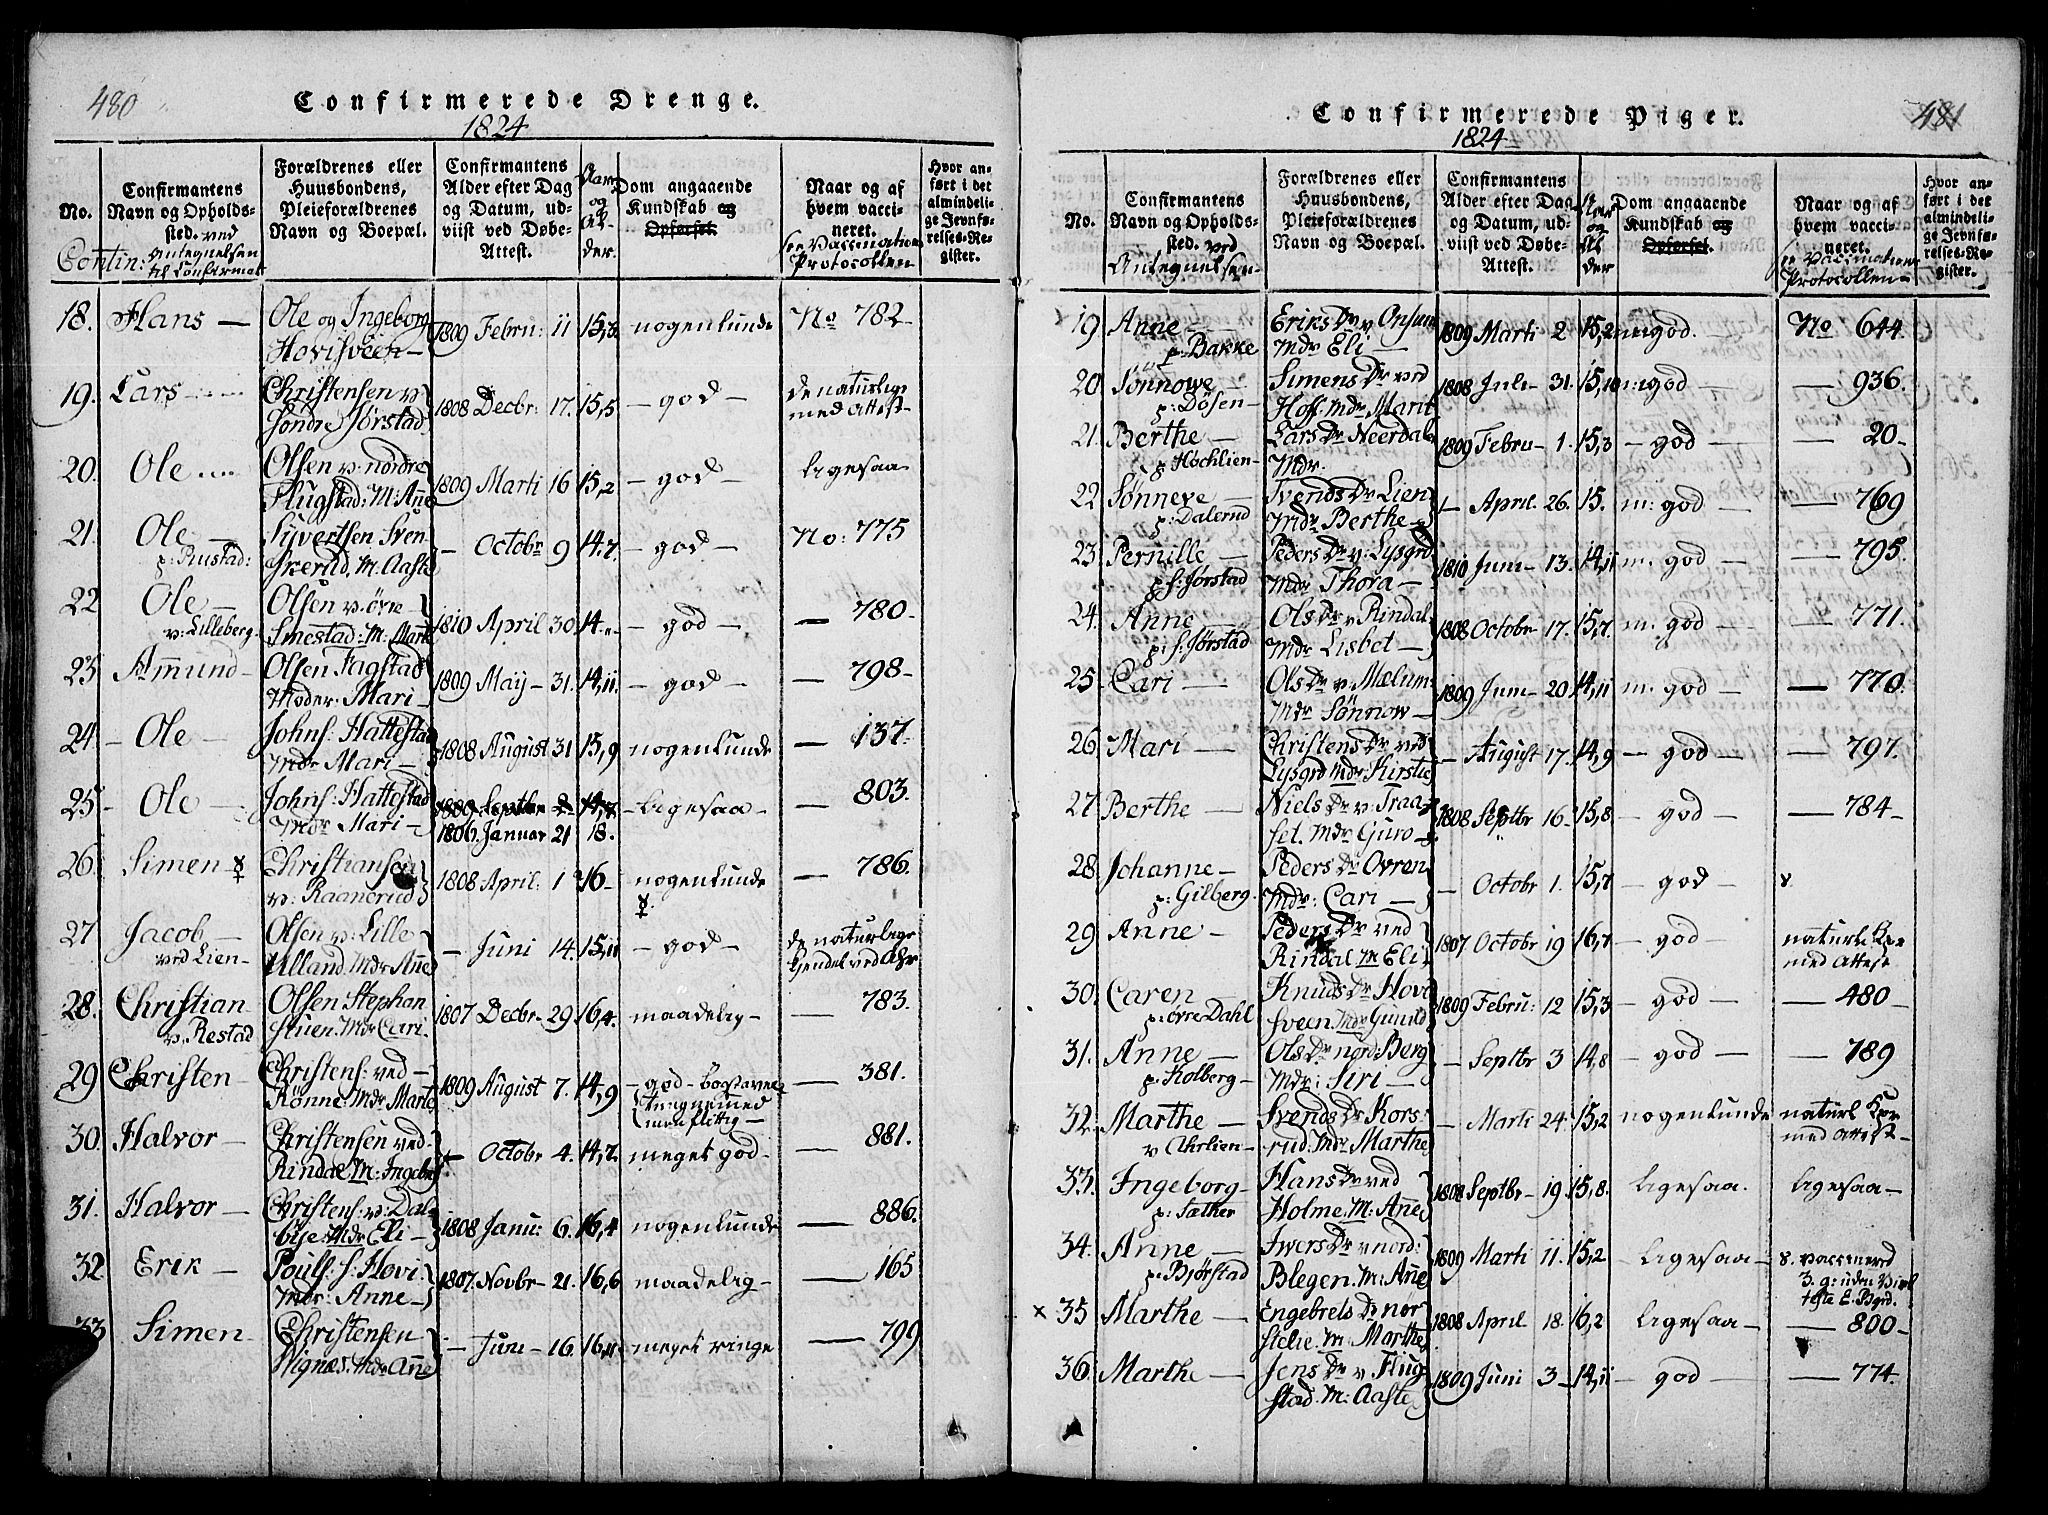 480
Confirmerede Drenge.
1824
No.
Contin:
Confirmantens Navn og Opholds-sted. ved Antegnelsen til Confirmat
Forældrenes eller Huusbondens, Pleieforældrenes Navn og Boepæl.
Confirmantens Alder efter Dag og Datum, ud-viist ved Døbe-Attest.
Aar og Al-der.
Dom angaaende Kundskab og Opførsel.
Naar og af hvem vacci-neret. see Vaccinations Protocollen
Hvor an-ført i det almindeli-ge Jevnfø-relses-Re-gister.
18. Hans — Ole og Ingeborg 1809 Febru: 11 15,3 nogenlunde No 782
Hovisveen —
19. Lars Christensen v 1808 Decbr: 17. 15,5 — god — de naturlige
Søndre Jørstad med Attest
20. Ole Olsen v: nordre 1809 Marti 16 15,2 — god — ligesaa
Flugstad: M: Anne
21. Ole — Syvertsen Sven — Octobr 9 14,7 — god — No: 775
p: Rustad: skerud. M. Aaste
22 Ole — Olsen v. øvre 1810 April 30. 14 — god — — 780
v: Lilleberg. Smestad: M: Marte
23 Amund — Olsen Fagstad 1809 May — 31. 14,11. — god — — 798
Moder: Mari —
24 — Ole — Johns: Hattestad 1808 August 31 15,9 nogenlunde — 137.
Mdr Mari —
25 — Ole — Johns: Hattestad 1809 Septbr 2 14,7 ligesaa — — 803.
Mdr Mari — 1806. Januar 21 18.
26 Simen Christiansen 1808 April: 1 16 nogenlunde — 786.
v: Raanerud
27 Jacob — Olsen v: Lille — Juni 14. 15,11 — god — de naturlige
ved Lien — Ulland. Mdr Anne
28. Christian Olsen Stephan 1807 Decbr — 29 16,4. maadelig — — 783.
v. Restad stuen. Mdr Cari.
29 Christen — Christens: ved — 1809 August 7. 14,9 — god — — 381.
Rønne: Mdr Marte men flittig —
30. Halvor — Christensen ved — Octobr 4. 14,7. meget god — — 881.
Rindal M. Ingebor
31. Halvor — Christens: v: Dal- 1808 Janu: 6. 16,4 nogenlunde — 886.
bye: Mdr Eli —
32 Erik — Pouls: s: Hovi 1807. Novbr — 21. 16,6 maadelig — — 165
Mdr: Anne —
33 Simen — Christensen — Juni — 16. 16,11 meget ringe — 799
Vignæs. Mdr Anne
481
Confirmerede Piger.
1824
No.
Confirmantens Navn og Opholds-sted. ved Antegnelsen
Forældrenes eller Huusbondens, Pleieforældrenes Navn og Boepæl.
Confirmantens Alder efter Dag og Datum, ud-viist ved Døbe-Attest.
Aar og Al der
Dom angaaende Kundskab og Opførsel.
Naar og af hvem vacci-neret. Vaccinations Protocollen —
Hvor an-ført i det almindeli-ge Jevnfø-relses-Re-gister.
19 Anne — Eriks Dr v Onsum 1809 Marti 2 15,2 m: god. — No 644
p: Bakke Mdr Eli —
20 Sønnowe — Simens Dr ved 1808 Juli — 31. 15,10 m: god — — 936.
p: Døsen — Hoff. Mdr Marit
21. Berthe — Lars Dr Neerdal 1809 Febru — 1. 15,3 — god — — 20 —
p: Høchlien — Mdr.
22 Sønneve — Ivends Dr Lien — April. 26. 15. m: god — — 769
p: Dalerud Mdr Berthe —
23. Pernille — Peders Dr v: Lysgrd 1810 Juni — 13. 14,11 m: god — — 795.
p s: Jørstad Mdr Thora —
24. Anne — Ols Dr v Rindal 1808 Octobr 17. 15,7. m: god — — 771.
p: s: Jørstad Mdr Lisbet —
25. Cari — Ols Dr v: Mælum 1809 Juni — 20 14,11 m: god — — 770.
Mdr Sønnow —
26. Mari — Christens Dr ved — August 17. 14,9 — god — — 797.
Lysgrd Mdr Kirstie
27. Berthe — Niels Dr v: Traa- 1808 Septbr 16 — 15,8 — god — — 784 —
set. Mdr Guro —
28. Johanne — Peders Dr Ovren — Octobr 1. 15,7 — god — 8.
p: Gilberg. Mdr: Cari —
29 Anne — Peders Dr ved 1807 Octobr 19 16,7 — god — naturl. Kpr
Rindal M Eli med Attest
30. Caren — Knuds Dr Hovi 1809 Febru: 12 15,3 — god — — 480 —
p: øvre Dahl Sveen. Mdr Gunild
31. Anne — Ols Dr nord: Berg — Septbr 3 14,8 — god — — 789
p: Kolberg — Mdr: Siri —
32. Marthe — Svends Dr Kors- — Marti 24. 15,2 nogenlunde naturl. Kpr
v Ahrlien — rud. Mdr Marthe med Attest —
33. Ingeborg — Hans Dr ved 1808 Septbr — 19. 15,8. ligesaa. ligesaa —
p: Sæther Holme. M: Anne
34. Anne — Iwers Dr v nord: 1809 Marti 11. 15,2 ligesaa — 8. vaccinered
p: Bjørstad Blegen. M: Anne 3. g: uden Virk
x 35 Marthe — Engebrets Dr nør 1808 April 18. 16,2 ligesaa — — 800 —
stelie M: Marthe
36. Marthe — Jens Dr v Flug 1809 Juni 3 — 14,11 — god — — 774.
stad. M: Aaste